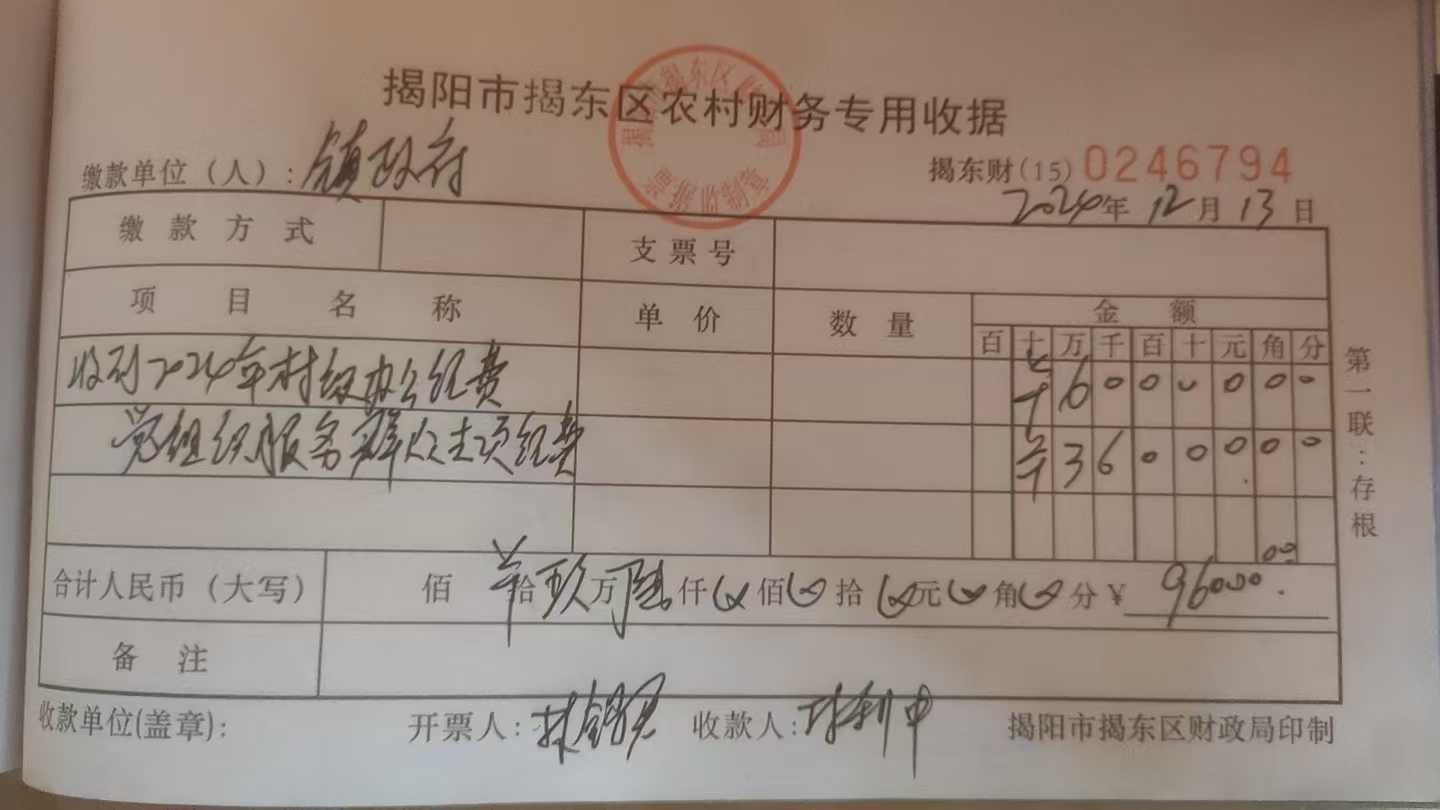 揭阳市揭东区农村财务专用收据
缴款单位（人）：镇政府
揭东财(15) 0246794
2024年 12月 13日
缴款方式 支票号
项目名称 单价 数量 金额
百 十 万 千 百 十 元 角 分
收到2024年村级办公经费 ￥ 6 0 0 0 0 0 0
党组织服务群众专项经费 ￥ 3 6 0 0 0 0 0
合计人民币（大写） 佰 拾 玖万 陆仟 0佰 0拾 0元 0角 0分 ￥ 96000.00
备注
收款单位(盖章)： 开票人： 收款人： 揭阳市揭东区财政局印制
第一联：存根
票据监制章